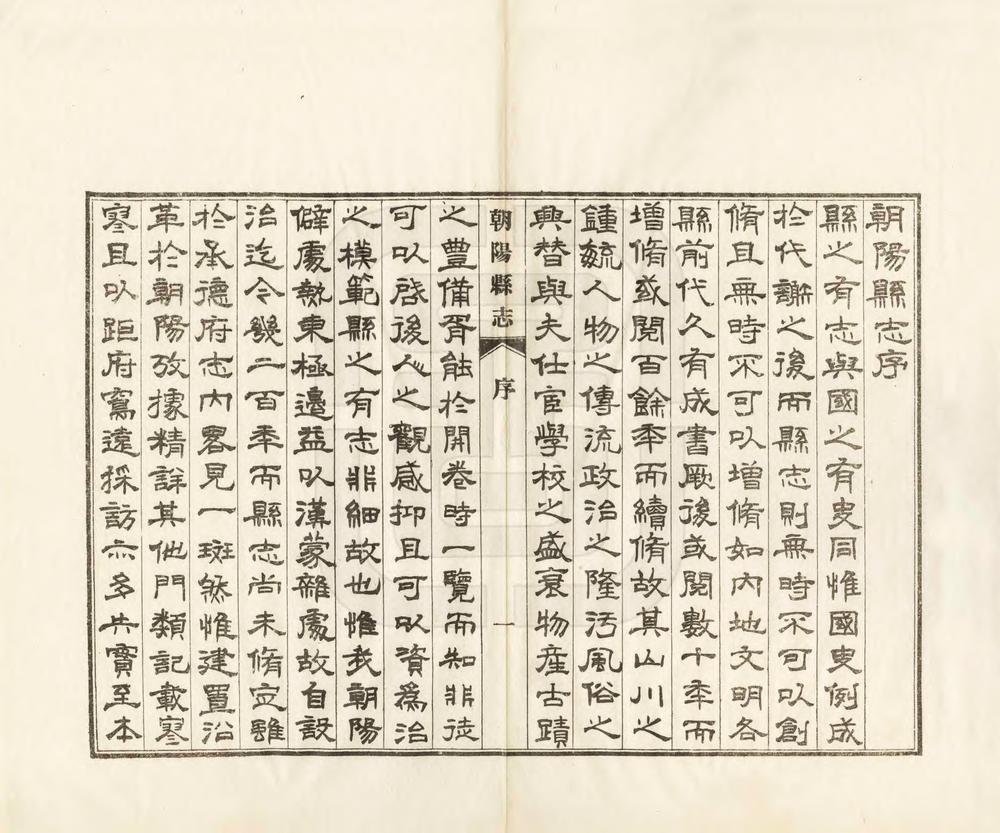 朝陽縣志序
縣之有志與國之有史同惟國史例成
於代謝之後而縣志則無時不可以創
脩且無時不可以增脩如內地文明各
縣前代久有成書厥後或閱數十年而
增脩或閱百餘年而續脩故其山川之
鍾毓人物之傳流政治之隆汚風俗之
興替與夫仕宦學校之盛衰物產古蹟
朝陽縣志 序 一
之豐備胥能於開卷時一覽而知非徒
可以啓後人之觀感抑且可以資為治
之模範縣之有志非細故也惟我朝陽
僻處熱東極邊益以漢蒙雜處故自設
治迄今幾二百年而縣志尚未脩定雖
於承德府志內畧見一斑然惟建置沿
革於朝陽攷據精詳其他門類記載寥
寥且以距府窵遠採訪亦多失實至本